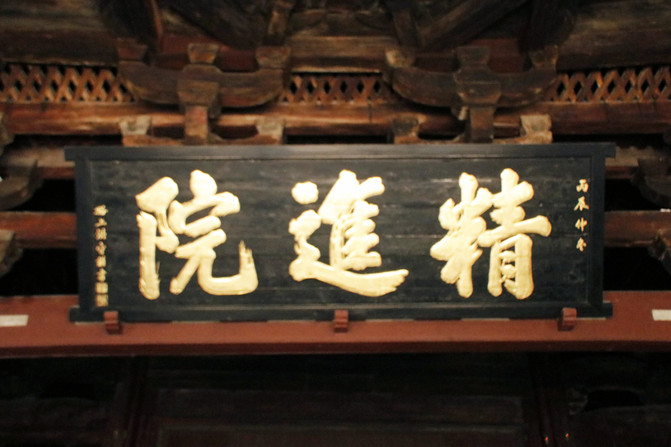 丙辰仲冬
精進院